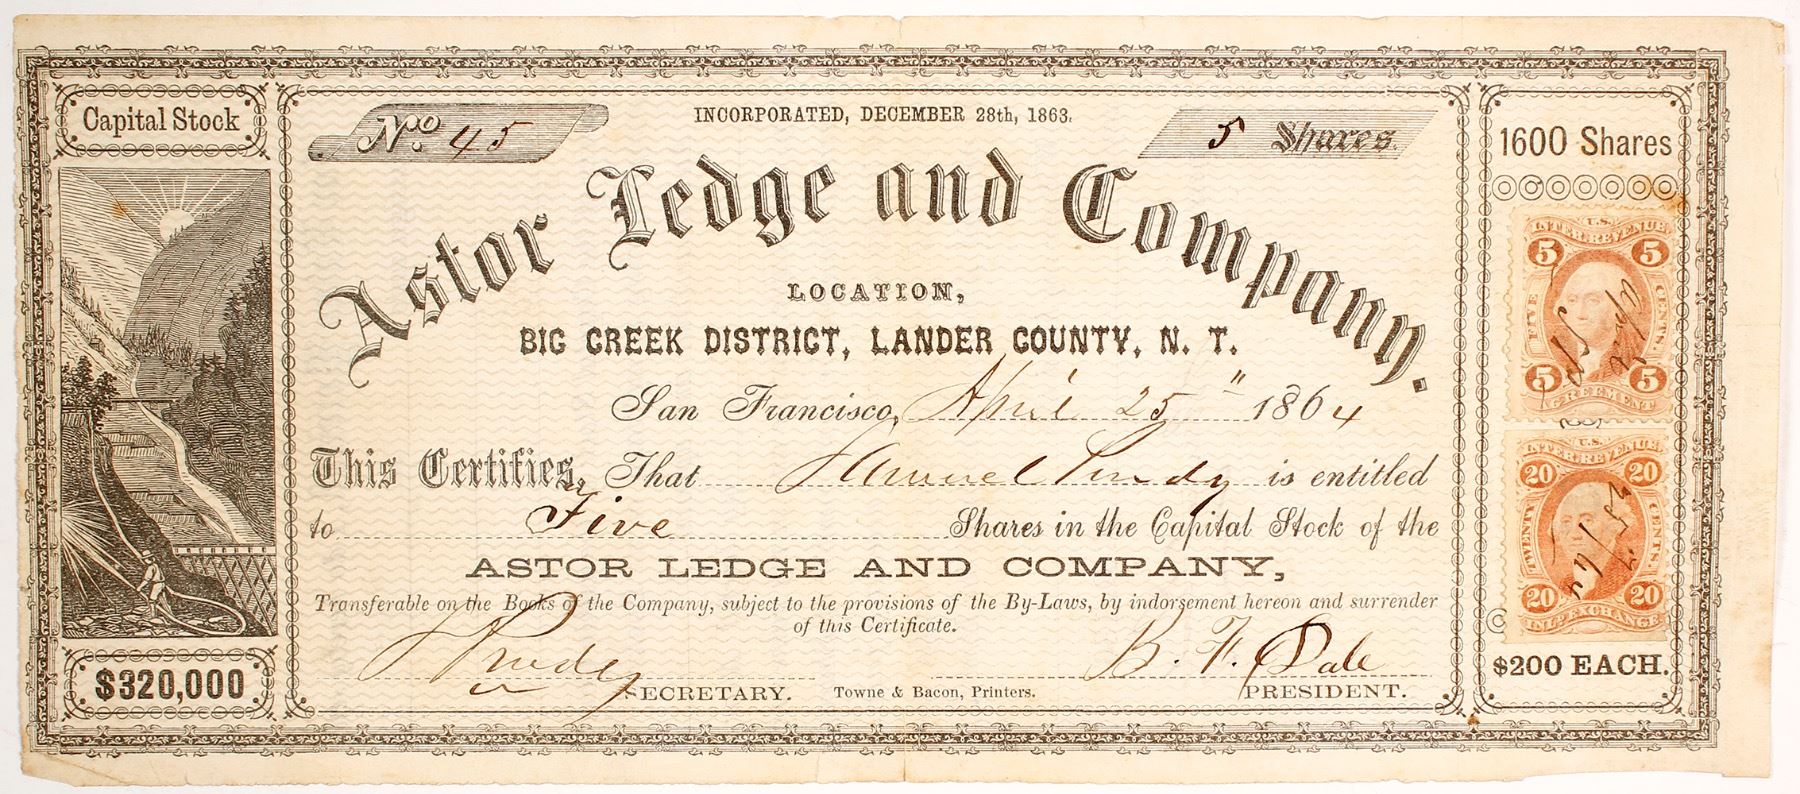 Capital Stock
No. 45
INCORPORATED, DECEMBER 28th, 1863.
5 Shares.
1600 Shares
Astor Ledge and Company.
LOCATION,
BIG CREEK DISTRICT, LANDER COUNTY, N. T.
San Francisco, April 25" 1864
This Certifies, That Samuel Purdy is entitled
to Five Shares in the Capital Stock of the
ASTOR LEDGE AND COMPANY,
Transferable on the Books of the Company, subject to the provisions of the By-Laws, by indorsement hereon and surrender
of this Certificate.
SECRETARY.
Towne & Bacon, Printers.
B. F. Dale
PRESIDENT.
$320,000
U.S.
INTER. REVENUE.
5 5
FIVE CENTS.
April
5 5
AGREEMENT
U.S.
INTER. REVENUE.
20 20
TWENTY CENTS.
20 20
INL. EXCHANGE
$200 EACH.